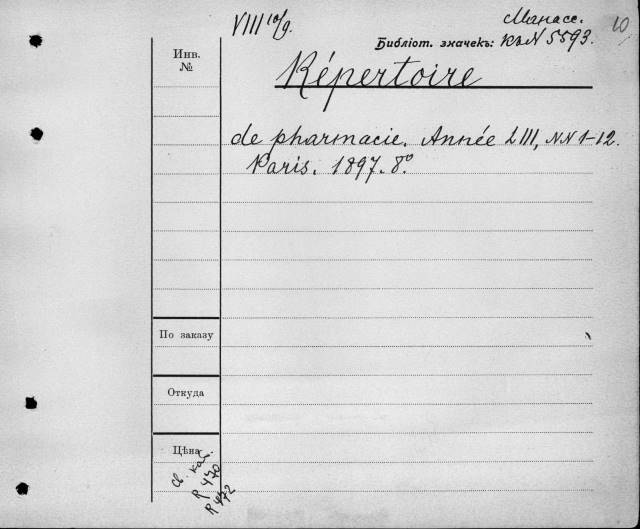 VIII 10/9.
Манасс. 10
Инв. №
Библіот. значекъ: къ N 5593.
Répertoire
de pharmacie. Année LIII, NN 1-12.
Paris. 1897. 8°.
По заказу
Откуда
Цѣна
св. кат.
R 470
R 472